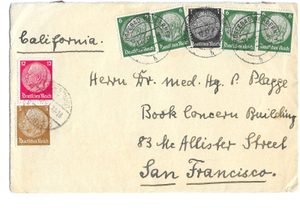 California.
6 6 1 6 6
Deutsches Reich Deutsches Reich Deutsches Reich Deutsches Reich Deutsches Reich
12
Deutsches Reich
Herrn Dr. med. Hg. P. Plagge
Book Concern Building
83 Mc Allister Street
San Francisco.
Deutsches Reich